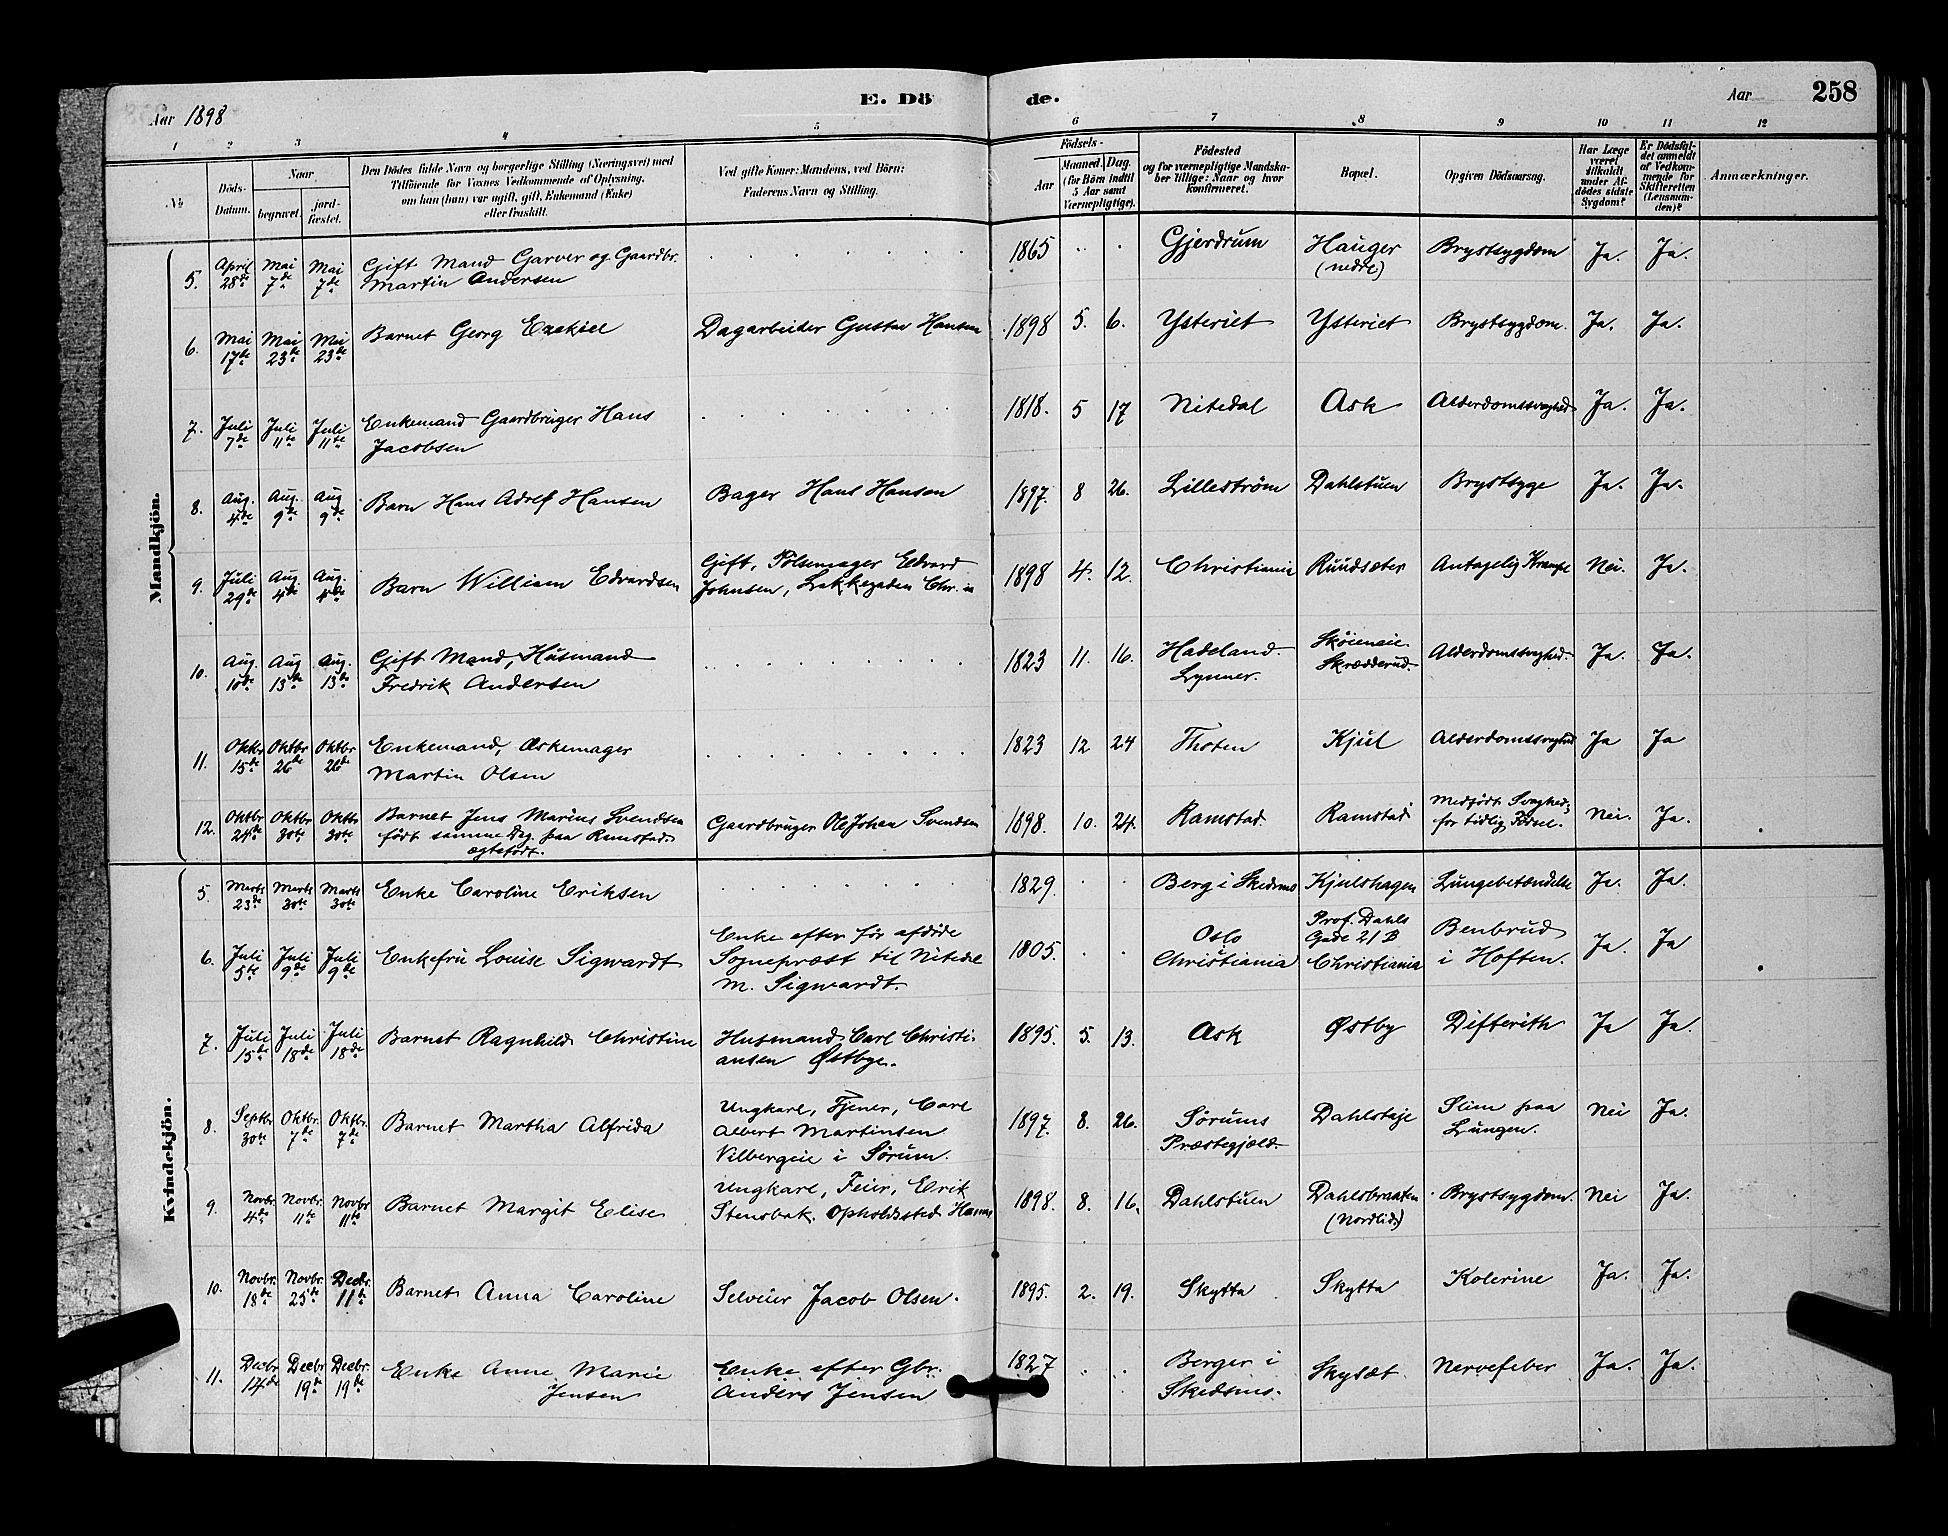 Aar 1898
E. Dö
de.
Aar
258
1 2 3 4 5 6 7 8 9 10 11 12
No
Döds-Datum.
Naar
begravet.
jord-fæstet.
Den Dödes fulde Navn og borgerlige Stilling (Næringsvei) med
Tilföiende for Voxnes Vedkommende af Oplysning,
om han (hun) var ugift, gift, Enkemand (Enke)
eller fraskilt.
Ved gifte Koner: Mandens, ved Börn:
Faderens Navn og Stilling.
Födsels-
Aar
Maaned. Dag.
(for Börn indtil
5 Aar samt
Værnepligtige).
Födested
og for værnepligtige Mandska-
ber tillige: Naar og hvor
konfirmeret.
Bopæl.
Opgiven Dödsaarsag.
Har Læge
været
tilkaldt
under Af-
dödes sidste
Sygdom?
Er Dödsfal-
det anmeldt
af Vedkom-
mende for
Skifteretten
(Lensman-
den)?
Anmærkninger.
Mandkjön.
5. April 28de Mai 7de Mai 7de Gift Mand Garver og Gaardbr. Martin Andersen 1865 Gjerdrum Hauger (nedre) Brystsygdom Ja. Ja.
6. Mai 17de Mai 23de Mai 23de Barnet Georg Ezekiel Dagarbeider Gustav Hansen 1898 5. 6. Ysteriet Ysteriet Brystsygdom. Ja. Ja.
7. Juli 7de Juli 11te Juli 11te Enkemand Gaardbruger Hans Jacobsen 1818. 5 17 Nitedal Ask Alderdomssvaghed Ja. Ja.
8. Aug. 4de Aug. 9de Aug 9de Barn Hans Adolf Hansen Bager Hans Hansen 1897. 8 26. Lilleström Dahlstuen Brystsyge Ja. Ja.
9. Juli 29de Aug. 4de Aug. 4de Barn William Edvardsen Gift, Pølsemager Edvard Johnsen, Lakkegaden Chr.ia 1898 4. 12. Christiania Ruudsæter Antagelig Krampe Nei. Ja.
10. Aug. 10de Aug 13de Aug. 13de Gift Mand, Husmand Fredrik Andersen 1823 11. 16. Hadeland. Lynner. Skøieneie. Skrædderud. Alderdomssvaghed. Ja. Ja.
11. Oktbr 15de Oktbr 26de Oktbr 26de Enkemand, Æskemager Martin Olsen 1823 12 24 Thoten Kjul Alderdomssvaghed Ja Ja
12. Oktbr 24de Oktbr 30te Oktbr 30te Barnet Jens Marius Svendsen født samme Dag paa Ramstad. ægtefødt. Gaardbruger Ole Johan Svendsen 1898. 10. 24. Ramstad Ramstad Medfødt Svaghed, for tidlig Fødsel. Nei. Ja.
Kvindekjön.
5. Marts 23de Marts 30te Marts 30te Enke Caroline Eriksen 1829. Berg i Skedsmo Kjulshagen Lungebetændelse Ja. Ja.
6. Juli 5te Juli 9de Juli 9de Enkefru Louise Sigwardt Enke efter før afdøde Sognepræst til Nitedal M. Sigwardt. 1805. Oslo Christiania Prof. Dahls Gade 21 B Christiania Benbrud i Hoften. Ja. Ja
7. Juli 15de Juli 18de Juli 18de Barnet Ragnhild Christine Husmand Carl Christi-ansen Østbye. 1895. 5. 13. Ask Østby Difterith Ja Ja.
8. Septbr. 30te Oktbr. 7de Oktbr. 7de Barnet Martha Alfrida Ungkarl, Tjener, Carl Albert Martinsen Valbergeie i Sørum. 1897. 8. 26. Sørums Præstegjæld. Dahlstøje Slim paa Lungen. Nei Ja.
9. Novbr. 4de Novbr. 11te Novbr 11te Barnet Margit Elise Ungkarl, Feier, Erik Stensbak. Opholdssted Hamar 1898. 8. 16. Dahlstuen Dahlsbraaten (Nordlid) Brystsygdom. Nei Ja.
10. Novbr. 18de Novbr. 25de Decbr. 11te Barnet Anna Caroline Selveier Jacob Olsen. 1895. 2. 19. Skytta Skytta Kolerine Ja. Ja.
11. Decbr 14de Decbr 19de Decbr. 19de Enke Anne Marie Jensen Enke efter Gbr. Anders Jensen 1827 Berger i Skedsmo. Skysæt. Nervefeber Ja. Ja.